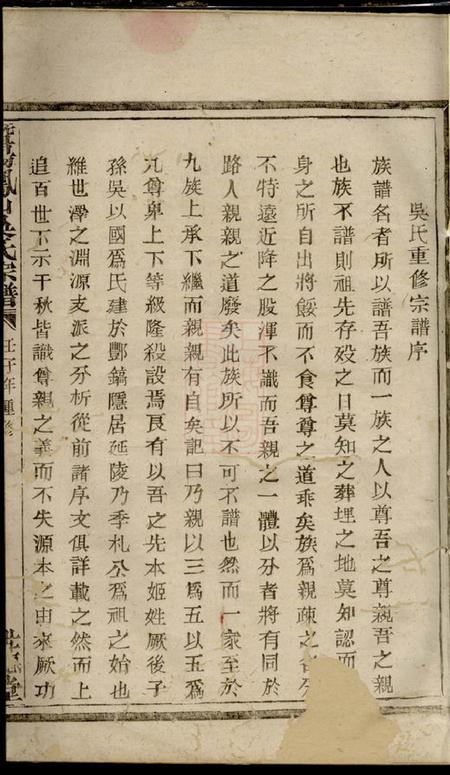 吳氏重修宗譜序
族譜名者所以譜吾族而一族之人以尊吾之尊親吾之親
也族不譜則祖先存歿之日莫知之葬埋之地莫知認而
身之所自出將餒而不食尊尊之道乖矣族爲親疎之
不特遠近降之股渾不識而吾親之一體以分者將有同於
路人親親之道廢矣此族所以不可不譜也然而一家至於
九族上承下繼而親親有自矣記曰乃親以三爲五以五爲
九尊卑上下等級隆殺設焉良有以吾之先本姬姓厥後子
孫吳以國爲氏建於酆鎬隱居延陵乃季札公爲祖之始也
維世澤之淵源支派之分析從前諸序文俱詳載之然而上
追百世下示千秋皆識尊親之義而不失源本之由來厥功
鳳山吳氏宗譜
壬午年重修
堂